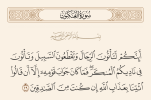 سورة العنكبوت
أَئِنَّكُمْ لَتَأْتُونَ الرِّجَالَ وَتَقْطَعُونَ السَّبِيلَ وَتَأْتُونَ
فِي نَادِيكُمُ الْمُنكَرَ فَمَا كَانَ جَوَابَ قَوْمِهِ إِلَّا أَن قَالُوا
ائْتِنَا بِعَذَابِ اللَّهِ إِن كُنتَ مِنَ الصَّادِقِينَ